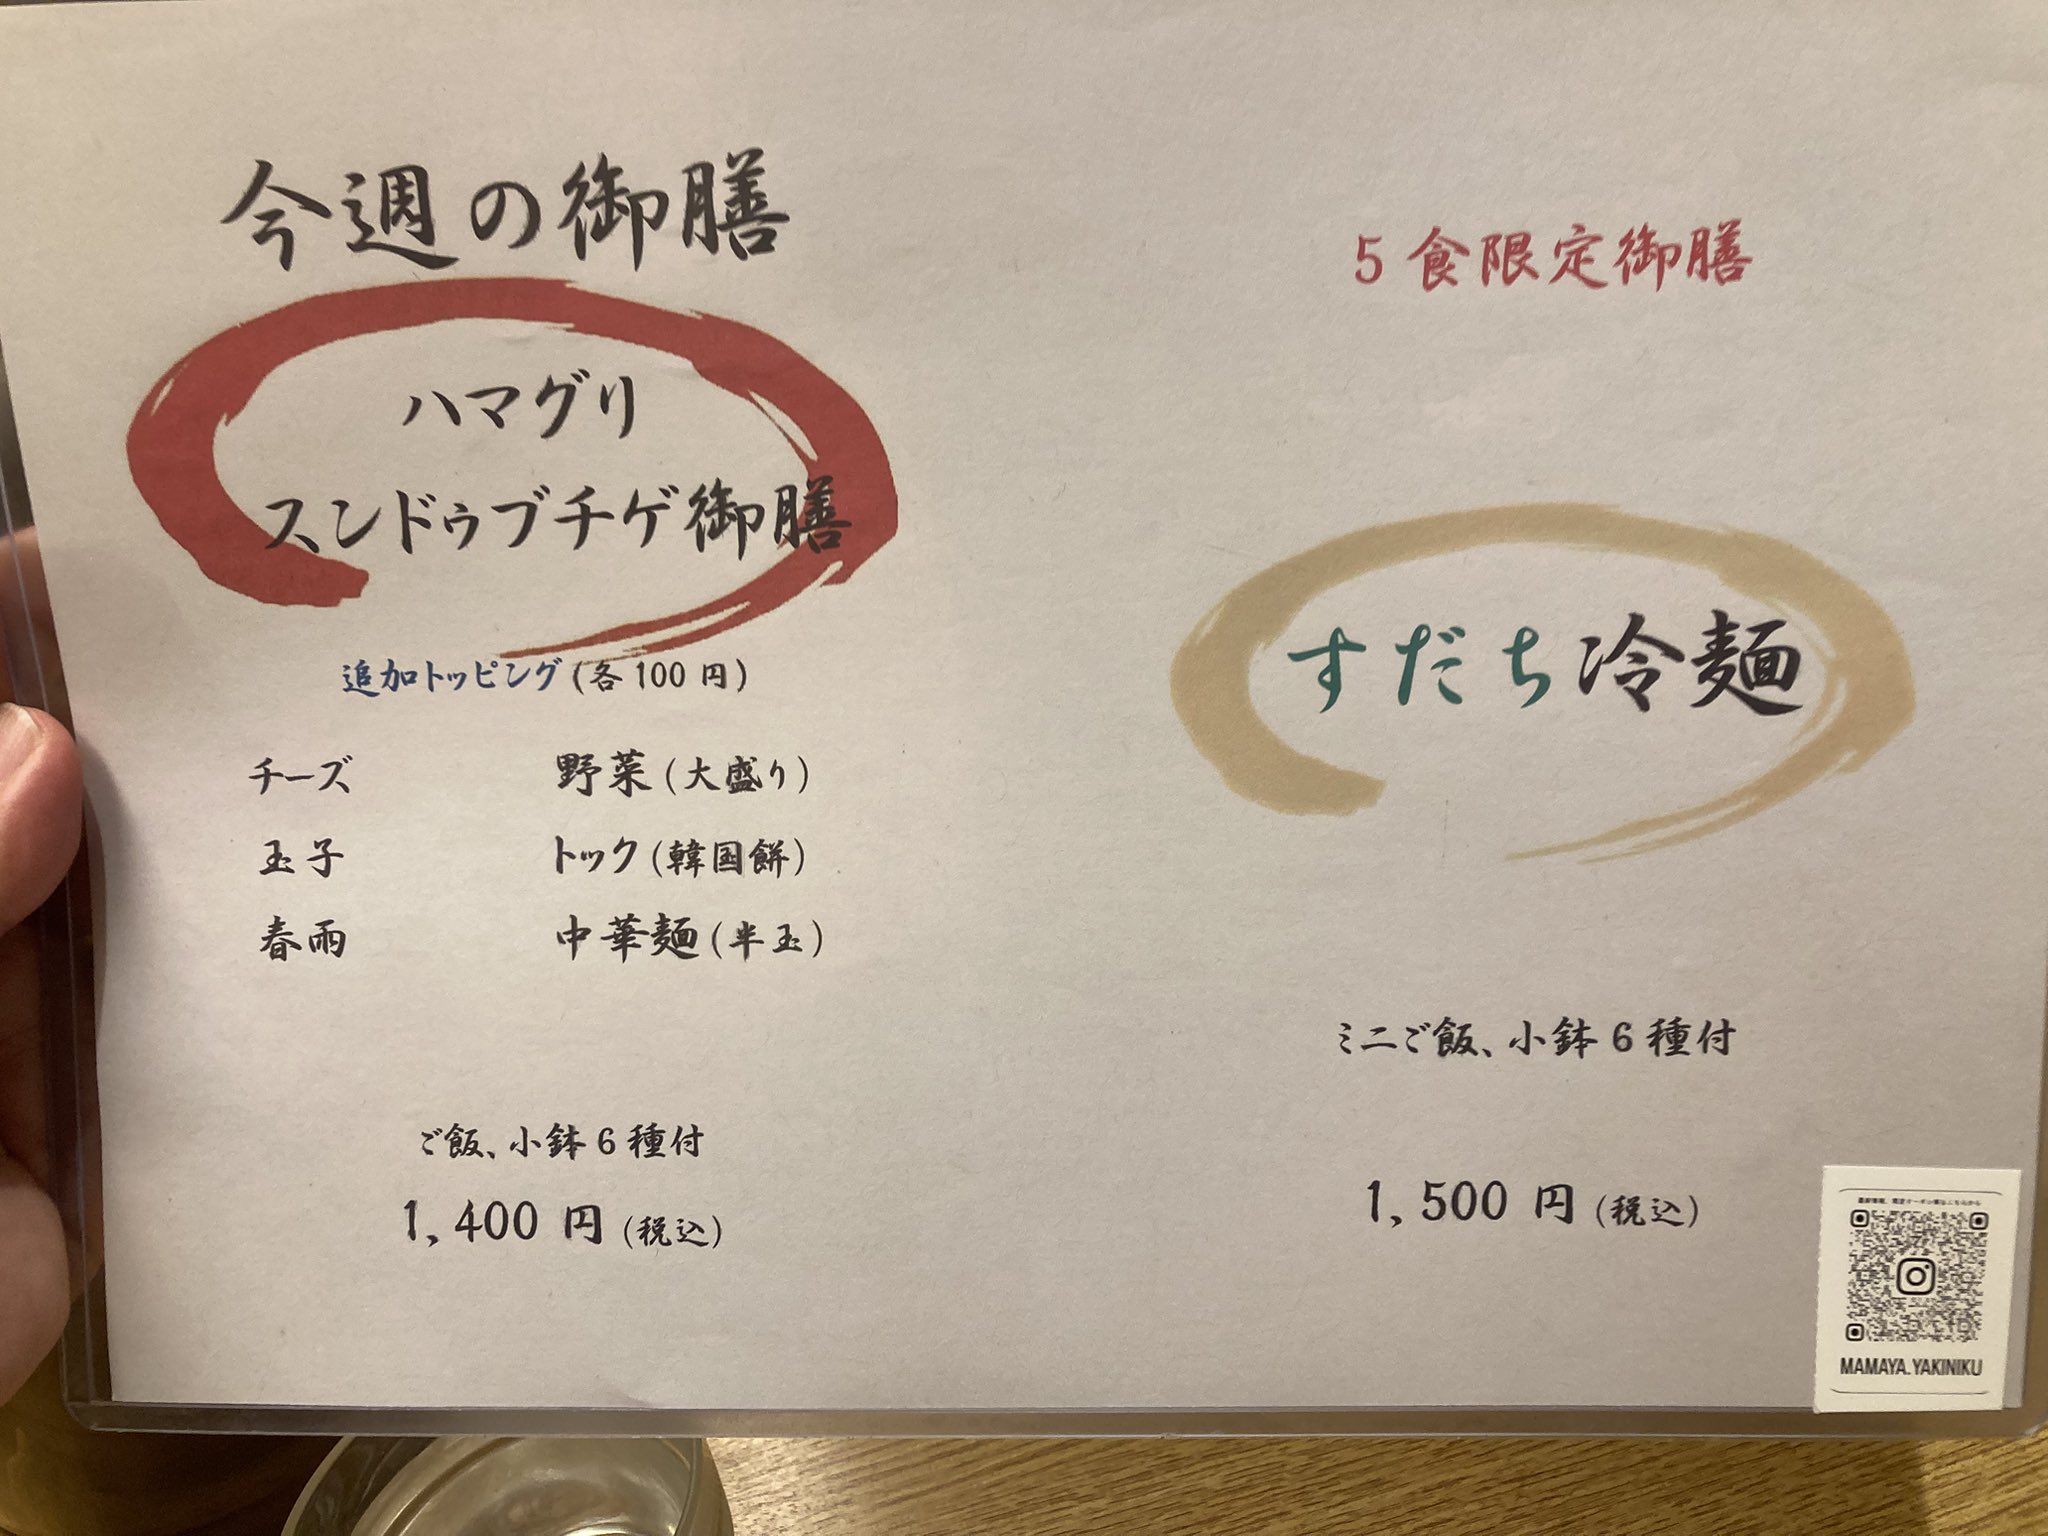 今週の御膳
ハマグリ
スンドゥブチゲ御膳
追加トッピング(各100円)
チーズ 野菜(大盛り)
玉子 トック(韓国餅)
春雨 中華麺(半玉)
ご飯、小鉢6種付
1,400円(税込)
5食限定御膳
すだち冷麺
ミニご飯、小鉢6種付
1,500円(税込)
MAMAYA.YAKINIKU